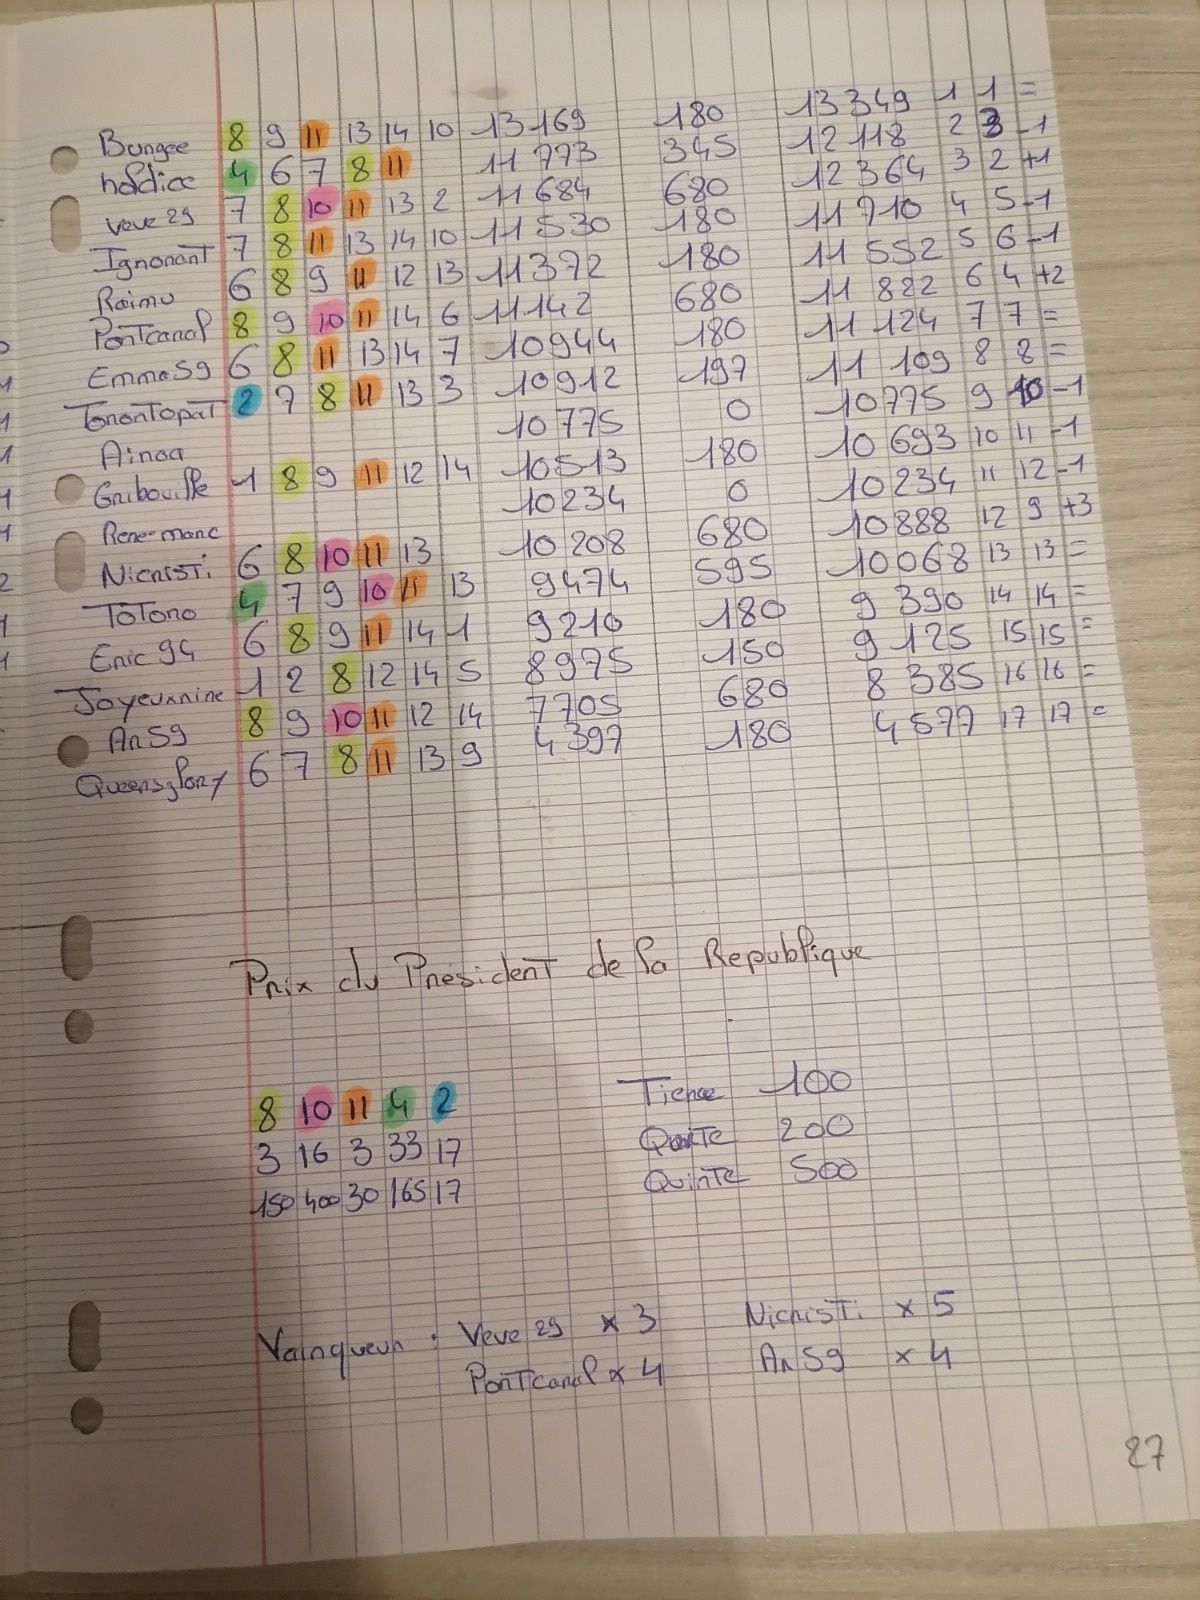 Bungee 8 9 11 13 14 10 13169 180 13349 1 1 =
holdice 4 6 7 8 11 11773 345 12118 2 3 -1
veve 29 7 8 10 11 13 2 11684 680 12364 3 2 +1
Ignorant 7 8 11 13 14 10 11530 180 11710 4 5 -1
Raimu 6 8 9 11 12 13 11372 180 11552 5 6 -1
Pontcanal 8 9 10 11 14 6 11142 680 11822 6 4 +2
Emma59 6 8 11 13 14 7 10944 180 11124 7 7 =
Torontopat 2 7 8 11 13 3 10912 197 11109 8 8 =
Ainoa 10775 0 10775 9 10 -1
Gribouille 1 8 9 11 12 14 10513 180 10693 10 11 -1
Rene-marc 10234 0 10234 11 12 -1
Nicristi 6 8 10 11 13 10208 680 10888 12 9 +3
Totono 4 7 9 10 11 13 9474 595 10068 13 13 =
Eric 94 6 8 9 11 14 1 9210 180 9390 14 14 =
Joyeuxnine 1 2 8 12 14 5 8975 150 9125 15 15 =
An59 8 9 10 11 12 14 7705 680 8385 16 16 =
6 7 8 11 13 9 4397 180 4577 17 17 =
Prix du Président de la Republique
8 10 11 4 2 Tierce 100
3 16 3 33 17 Quarte 200
150 400 30 165 17 Quinte 500
Vainqueur : Veve 29 x 3 Nicristi x 5
Pontcanal x 4 An 59 x 4
27